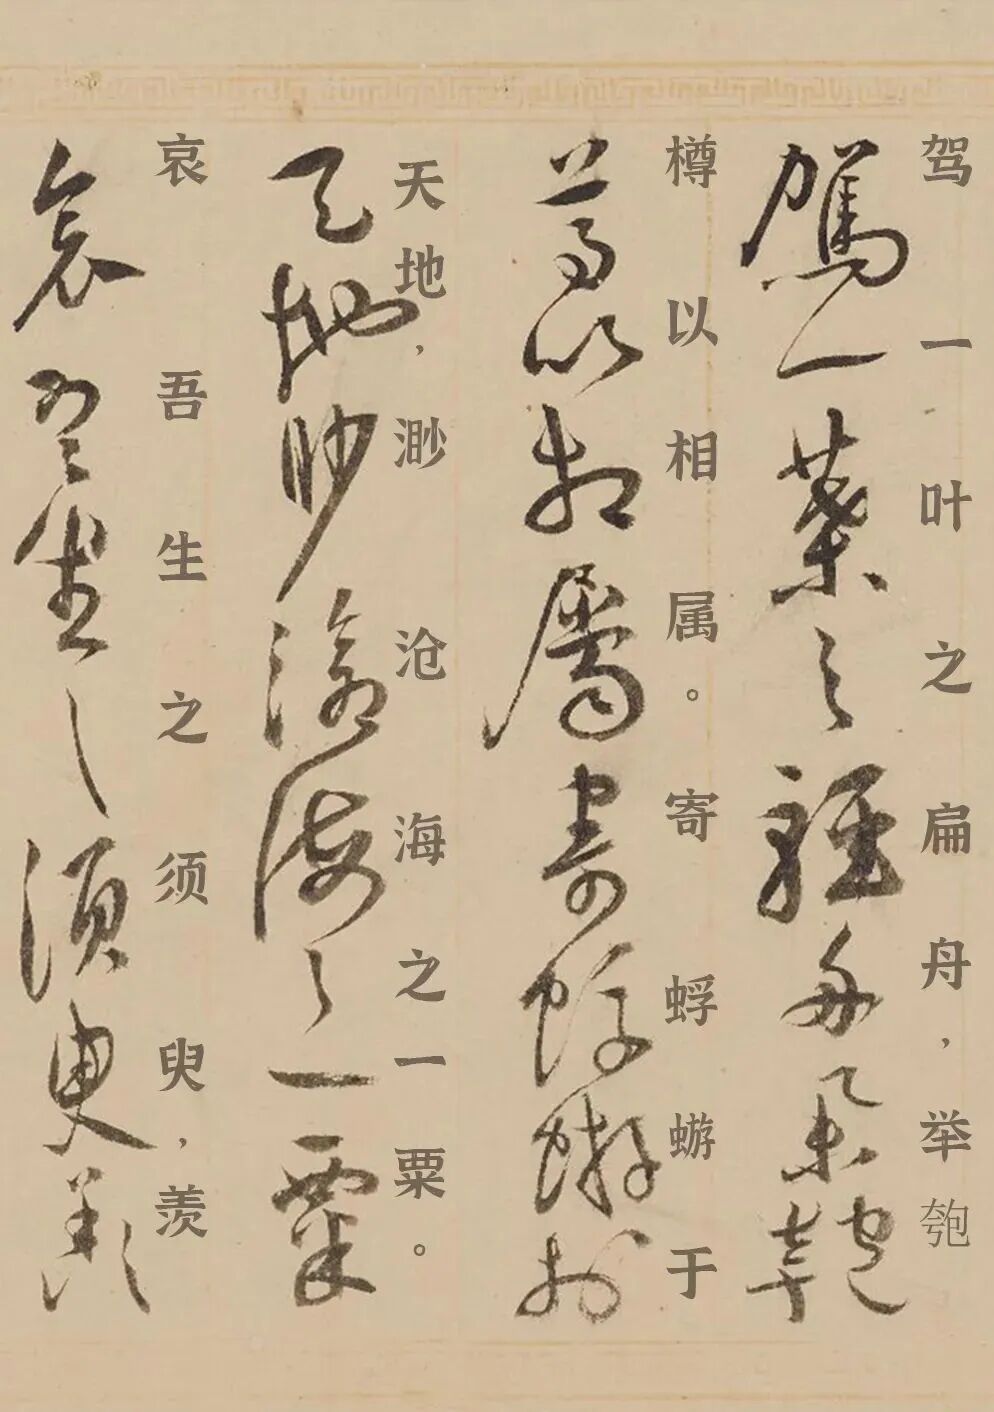 驾一叶之扁舟，举匏
駕一葉之輕舟舉匏
樽以相属。寄蜉蝣于
尊以相屬寄蜉蝣於
天地，渺沧海之一粟。
天地眇滄海之一粟
哀吾生之须臾，羡
哀吾生之須臾羨